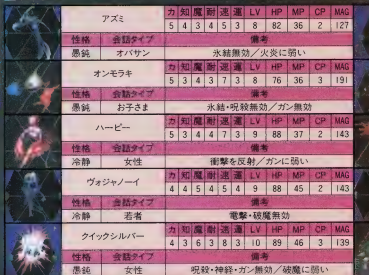 アズミ
カ 知 魔 耐 速 運 LV HP MP CP MAG
5 4 3 4 5 3 8 82 36 2 127
性格 会話タイプ 備考
愚鈍 オバサン 氷結無効/火炎に弱い
オンモラキ
カ 知 魔 耐 速 運 LV HP MP CP MAG
4 3 4 4 7 4 8 76 36 3 191
性格 会話タイプ 備考
愚鈍 お子さま 氷結・呪殺無効/ガン無効
ハーピー
カ 知 魔 耐 速 運 LV HP MP CP MAG
5 3 4 4 7 3 9 88 37 2 143
性格 会話タイプ 備考
冷静 女性 衝撃を反射/ガンに弱い
ヴォジャノーイ
カ 知 魔 耐 速 運 LV HP MP CP MAG
4 4 5 4 5 4 9 88 45 2 143
性格 会話タイプ 備考
冷静 若者 電撃・破魔無効
クイックシルバー
カ 知 魔 耐 速 運 LV HP MP CP MAG
4 3 6 3 8 3 10 89 46 3 139
性格 会話タイプ 備考
愚鈍 女性 呪殺・神経・ガン無効/破魔に弱い